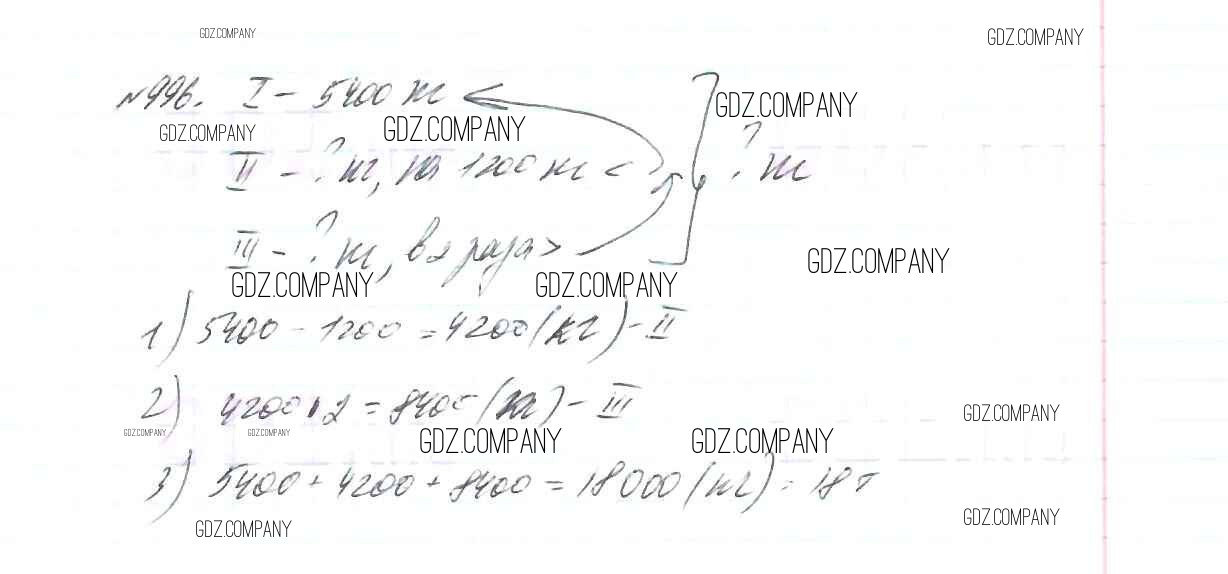 GDZ.COMPANY
GDZ.COMPANY
№996. I – 5400 кг
GDZ.COMPANY
GDZ.COMPANY
GDZ.COMPANY
II – ? кг, на 1200 кг <
? кг
III – ? кг, в 2 раза >
GDZ.COMPANY
GDZ.COMPANY
GDZ.COMPANY
1) 5400 - 1200 = 4200 (кг) – II
2) 4200 · 2 = 8400 (кг) – III
GDZ.COMPANY
GDZ.COMPANY
GDZ.COMPANY
GDZ.COMPANY
GDZ.COMPANY
3) 5400 + 4200 + 8400 = 18000 (кг) = 18 т
GDZ.COMPANY
GDZ.COMPANY